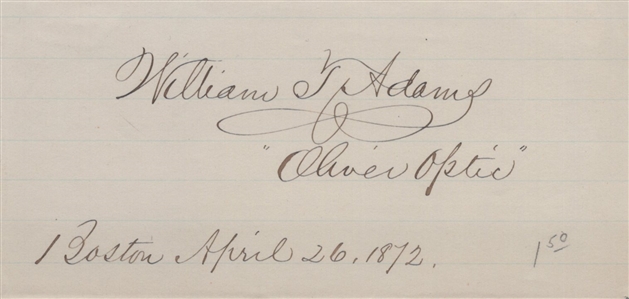 William T. Adams
"Oliver Optic"
Boston April 26. 1872.
1 50